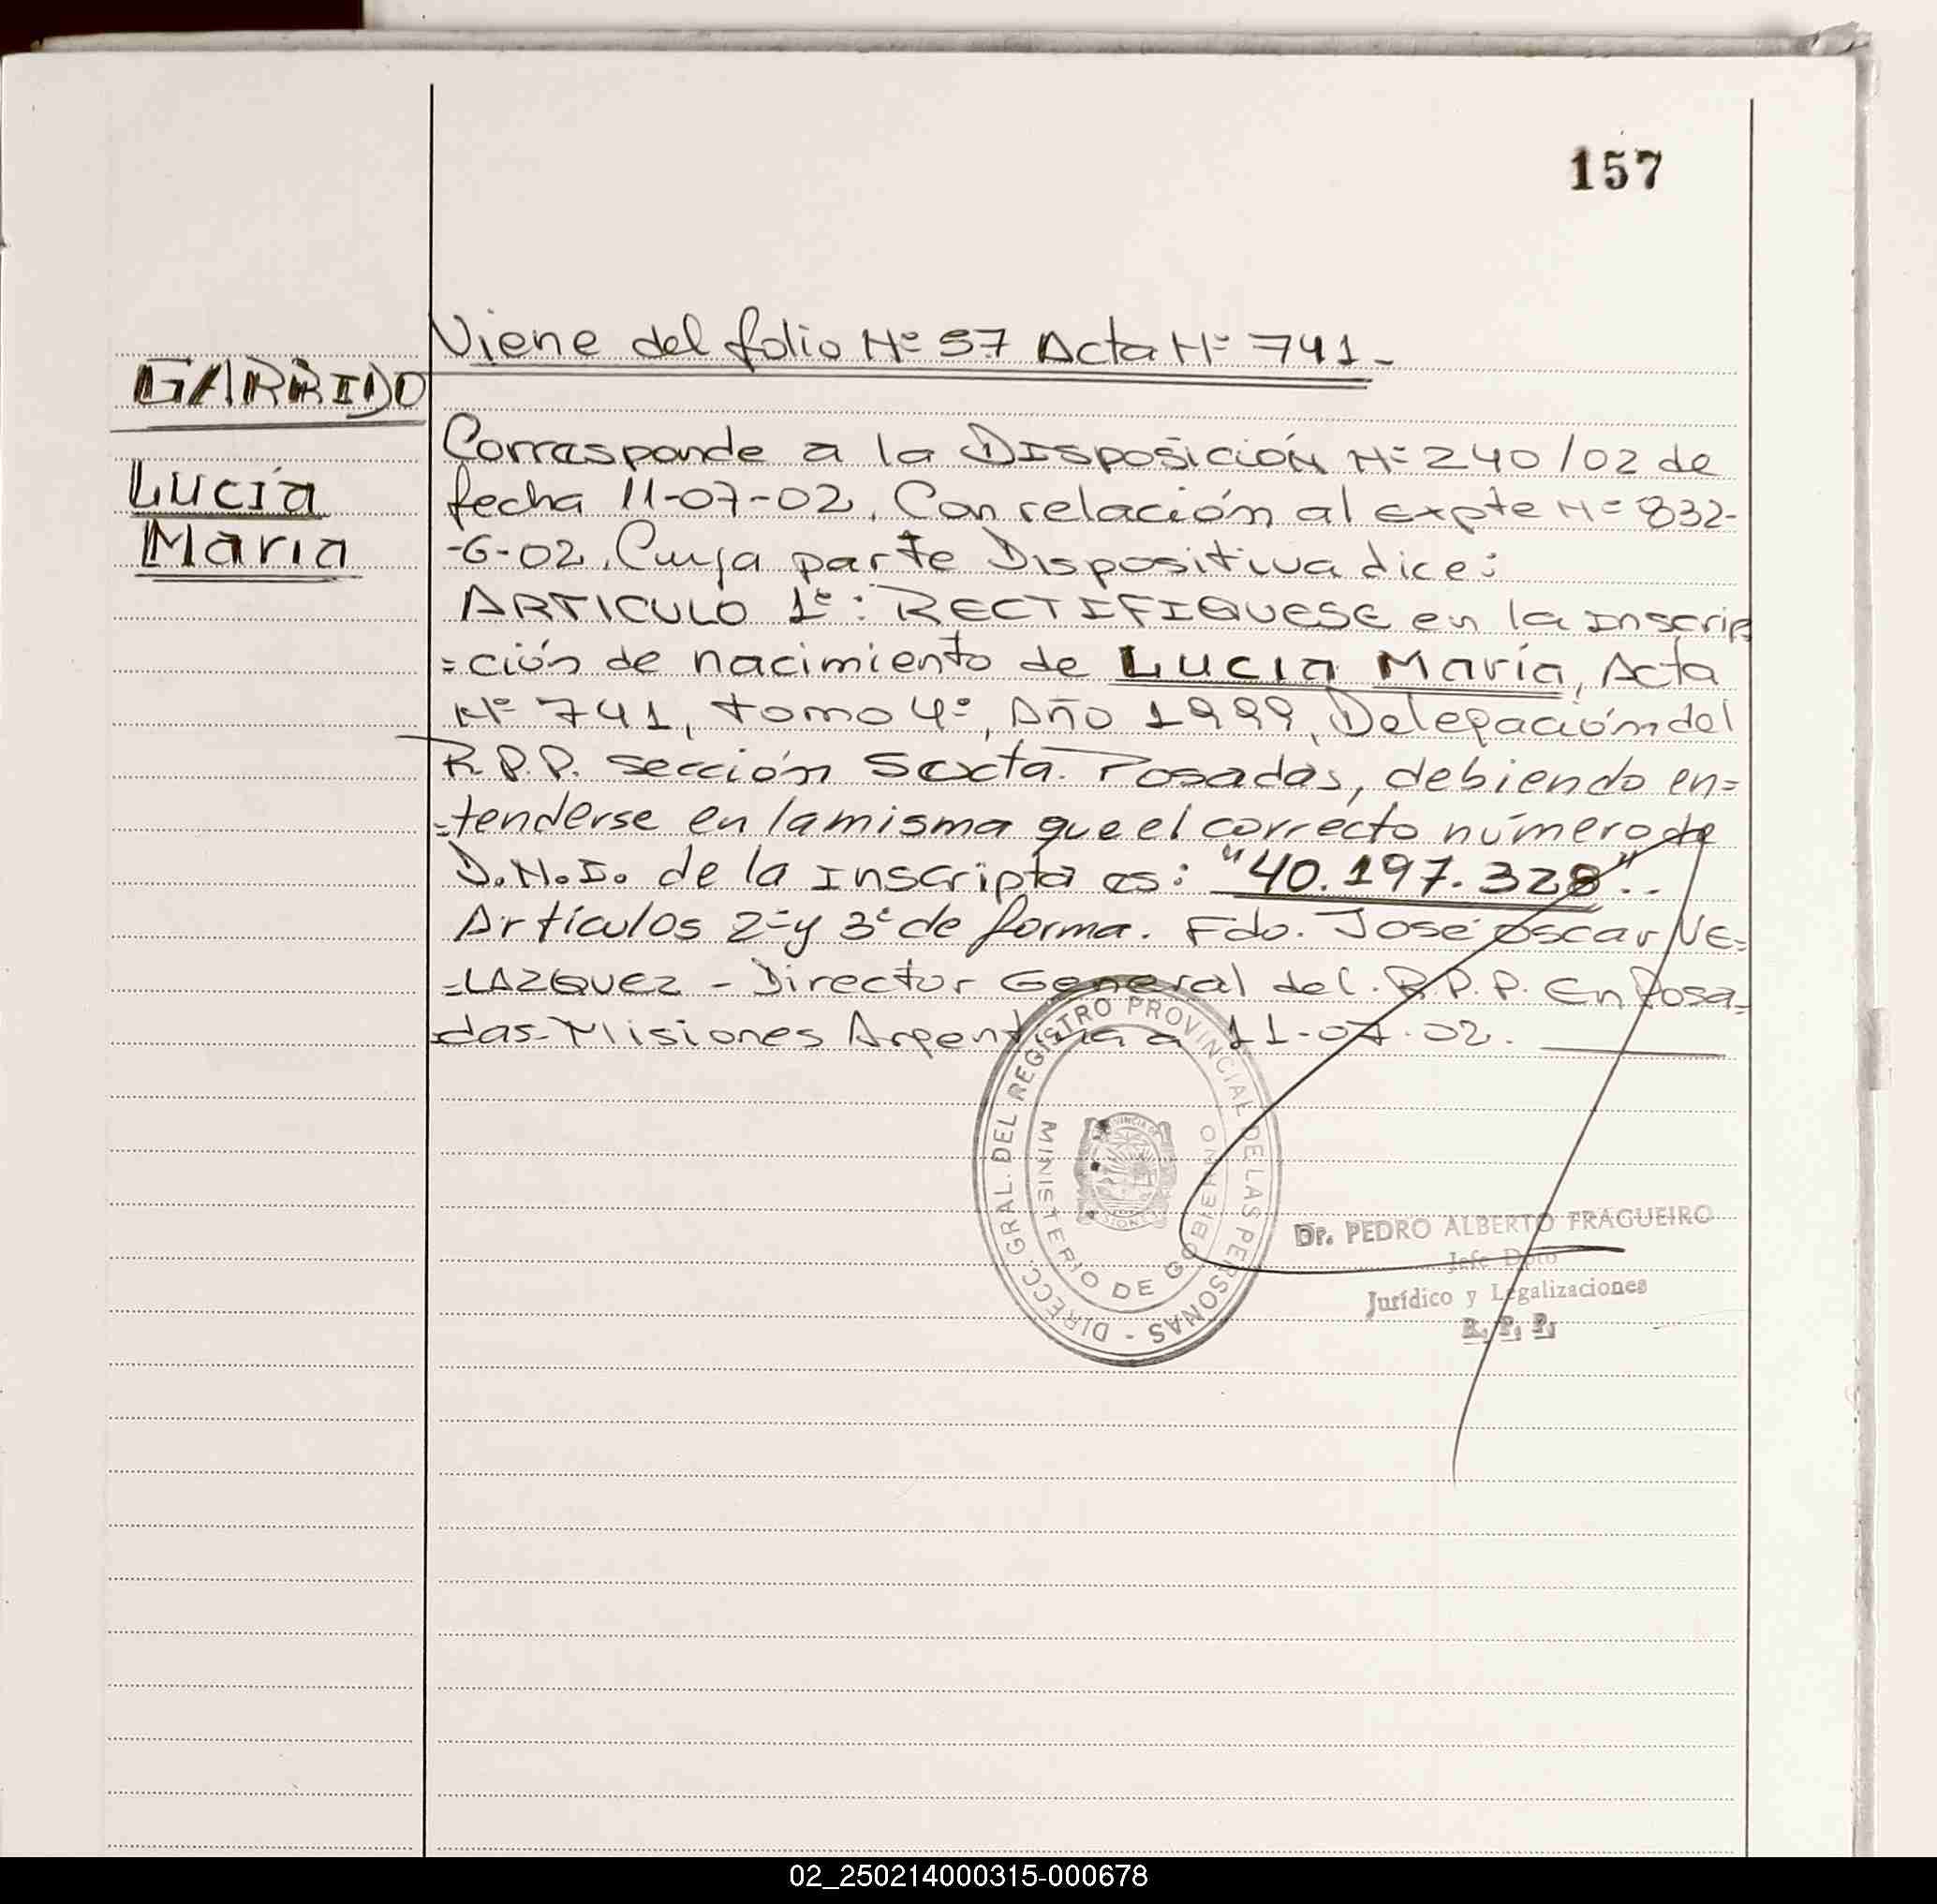 157
Viene del folio Nº 57 Acta Nº 741-
GARRIDO
Lucía
María
Corresponde a la Disposición Nº 240/02 de
fecha 11-07-02. Con relación al expte Nº 832-
-G-02. Cuya parte Dispositiva dice:
ARTICULO 1º: RECTIFIQUESE en la inscrip
=ción de nacimiento de Lucía María, Acta
Nº 741, tomo 4º, Año 1999, Delegación del
R.P.P. sección Sexta. Posadas, debiendo en=
=tenderse en la misma que el correcto número de
D.N.I. de la inscripta es: "40.197.328"..
Artículos 2º y 3º de forma. Fdo. José Oscar VE=
=LAZQUEZ - Director General del R.P.P. En Posa=
das-Misiones Argentina a 11-07-02.
DIRECC. GRAL. DEL REGISTRO PROVINCIAL DE LAS PERSONAS -
MINISTERIO DE GOBIERNO
Dr. PEDRO ALBERTO FRAGUEIRO
Jefe Dpto
Jurídico y Legalizaciones
R. P. P.
02_250214000315-000678